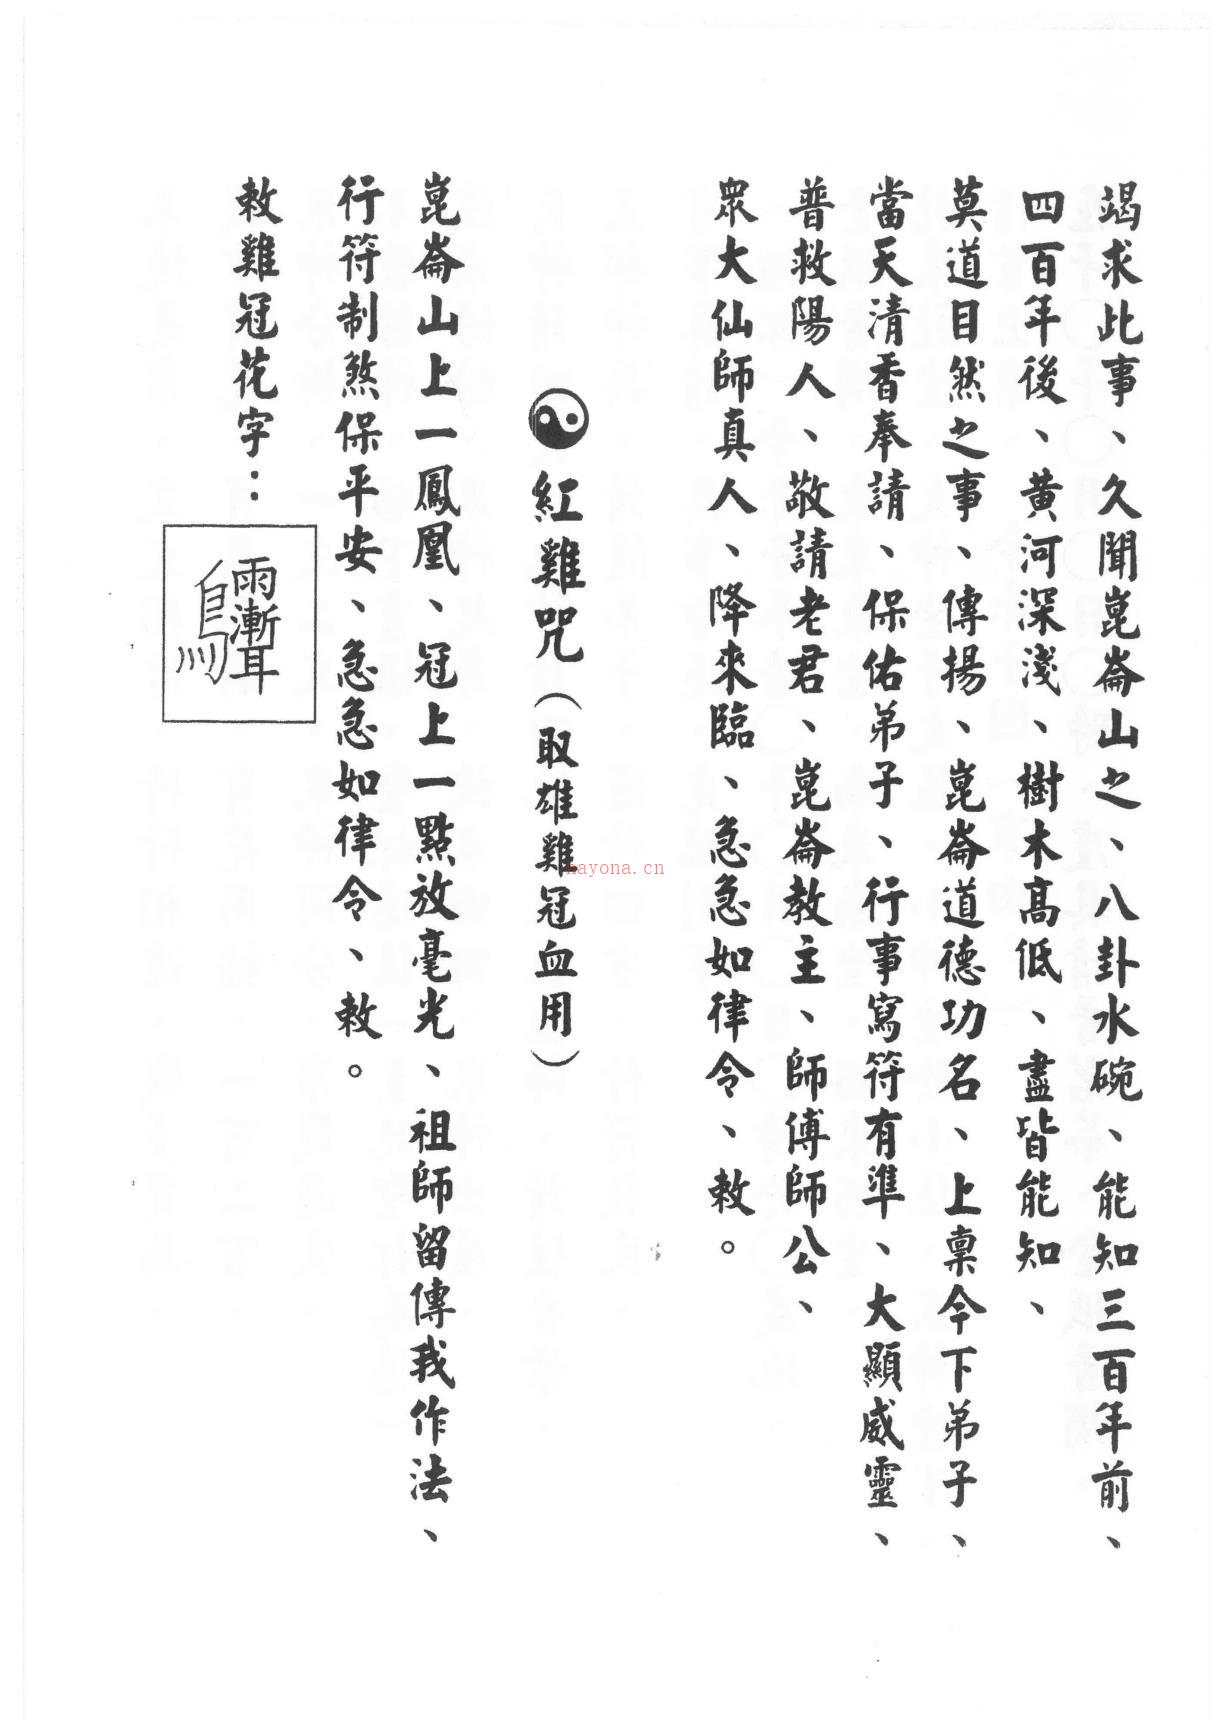 竭求此事、久聞崑崙山之、八卦水碗、能知三百年前、
四百年後、黃河深淺、樹木高低、盡皆能知、
莫道目然之事、傳揚、崑崙道德功名、上稟今下弟子、
當天清香奉請、保佑弟子、行事寫符有準、大顯威靈、
普救陽人、敬請老君、崑崙教主、師傅師公、
眾大仙師真人、降來臨、急急如律令、敕。
☯紅雞咒（取雄雞冠血用）
崑崙山上一鳳凰、冠上一點放毫光、祖師留傳我作法、
行符制煞保平安、急急如律令、敕。
敕雞冠花字：
雨漸耳
nayona.cn